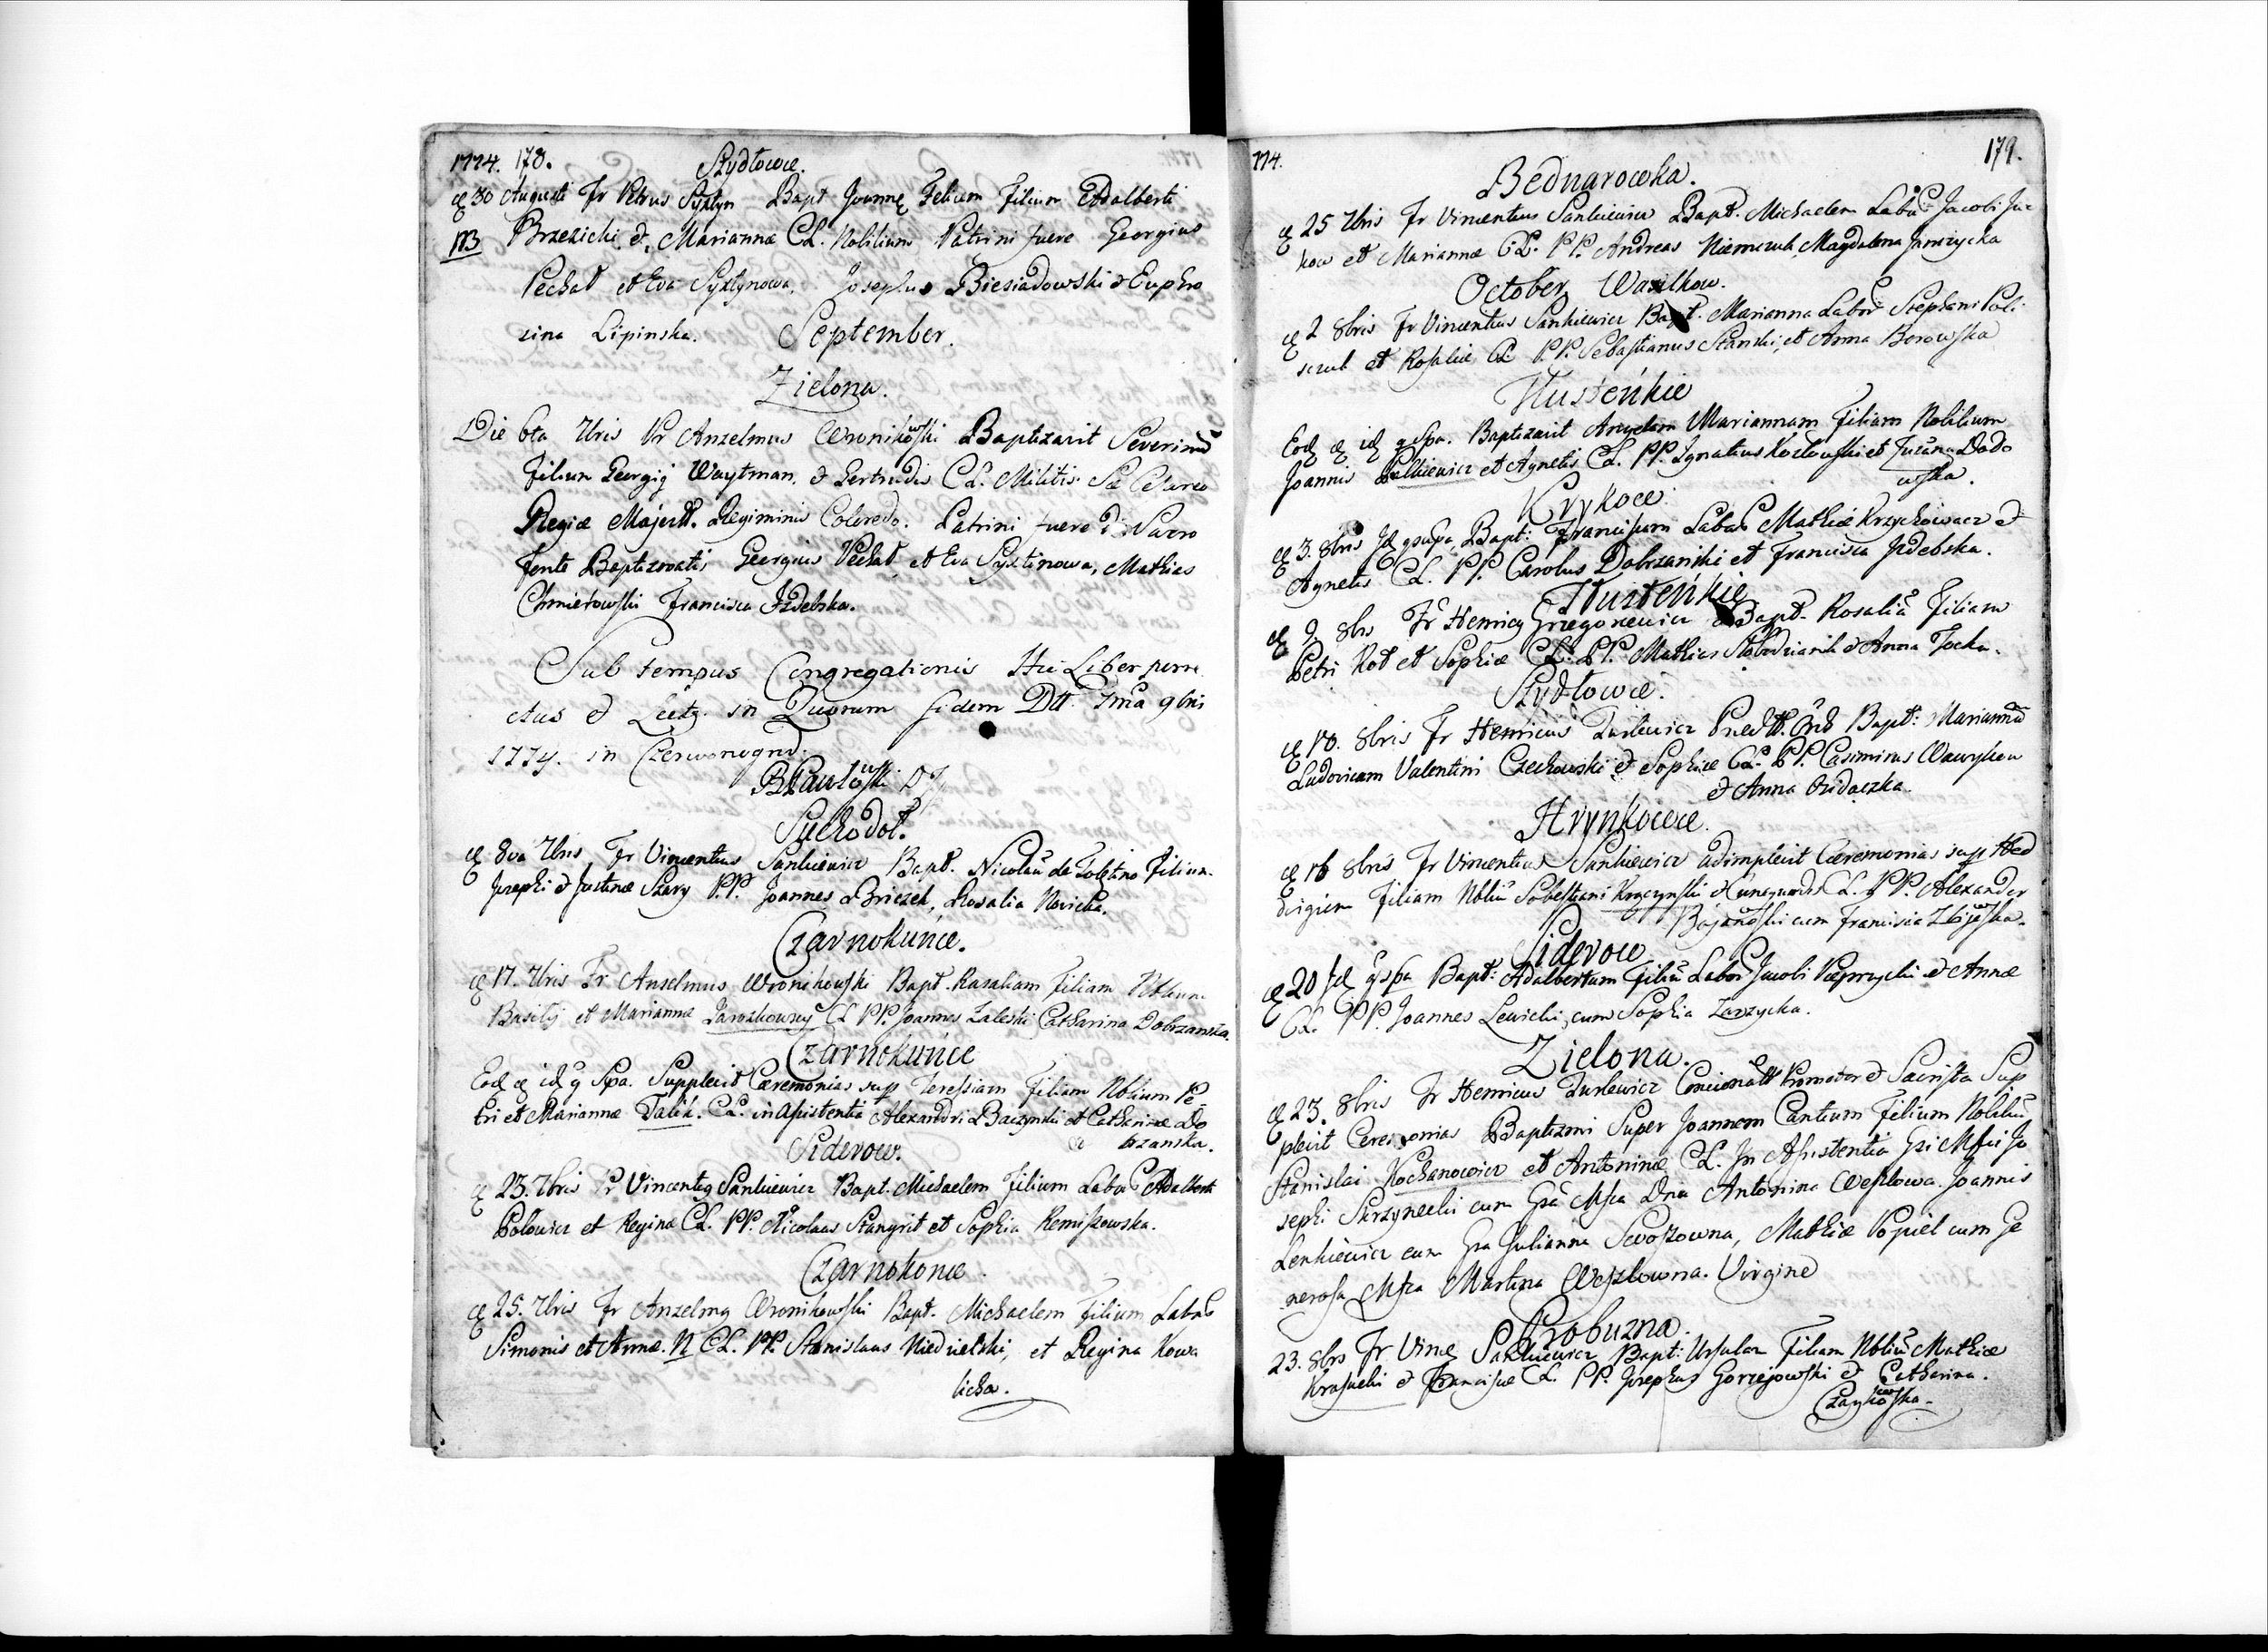 1774. 178.
Szydłowce.
30 Augusti Fr Petrus Syxtyn Bapt Joannē Felicem Filium Adalberti
NB Brzezicki & Mariannæ CL. Nobilium Patrini fuere Georgius
Pechat et Eva Syxtynowa, Josephus Biesiadowski & Euphro
zina Lipinska. September.
Zielona.
Die 6ta 7bris Fr Anzelmus Wronikowski Baptizavit Severinū
filium Georgij Waytman, & Gertrudis CL. Militis Sæ Cesareo
Regiæ Majestt. Regiminis Coloredo. Patrini fuere de Sacro
fonte Baptizmatis Georgius Pechat et Eva Syxtinowa, Mathias
Chmielowski Francisca Izdebska.
Sub tempus Congregationis Hic Liber perre
ctus & in Quorum fidem Dtt 9bris
1774. in Czerwonogrod.
BPawłowski
Suchodoł.
8va 7bris Fr Vincentius Sankiewicz Bapt. Nicolaū de Tolētino Filium
Josephi & Justinæ Szary P.P. Joannes Briczek, Rosalia Novicka.
Czarnokuńce.
17. 7bris Fr Anselmus Wronikowski Bapt. Rosaliam Filiam Nblium
Basilij et Mariannæ CL PP. Joannes Zaleski Catharina Dobrzanska.
Czarnokuńce
Eod id q Spa. Supplevit Cæremonias sup Teressiam Filiam Nblium Pe-
tri et Mariannæ Talik. CL. in Assistentia Alexandri Baczynski et Catharinæ Do
brzanska.
Siderow.
23. 7bris Fr Vincentius Sankiewicz Bapt. Michaelem Filium Labor Adalberti
Bolowicz et Reginæ CL. PP. Nicolaus Stangrit et Sophia Remiszowska.
Czarnokonce.
25. 7bris Fr Anzelmg Wronikowski Bapt. Michaelem Filium Labor
Simonis et Annæ. N CL. PP. Stanislaus Niedzielski, et Regina Kowa
licka.
774. 179.
Bednarowka.
25 7bris Fr Vincentius Sankiewicz Bapt. Michaelem Labor Jacobi
kow et Mariannæ CL. P.P. Andreas Niemczuk, Magdalena Janczycka
October Wasilkow.
2 8bris Fr Vincentius Sankiewicz Bapt. Marianna Labor Stephani Poli
szuk et Rosaliæ CL P.P. Sebastianus Stanski, et Anna Borowska
Husteńkie
Eod id q Spa. Baptizavit Angelam Mariannam Filiam Nobilium
Joannis et Agnetis CL. PP. Ignatius Kozłowski et Dado
wska.
Krykoce
3. 8bris Id qsupa Bapt: Franciscum Labor Mathiæ Krzychowacz &
Agnetis CL. PP. Carolus Dobrzanski et Francisca Izdebska.
Husteńkie
9 8bris Fr Henricg Grzegorzewicz Bapt. Rosaliā Filiam
Petri Kot et Sophiæ CL. PP. Mathias & Anna
Szydłowce.
10. 8bris Fr Henricus Turlewicz Bapt: Mariannā
Ludovicam Valentini Czechowski & Sophiæ CL. PP. Casimirus Wawryków
& Anna
Hrynkowce.
16 8bris Fr Vincentius Sankiewicz adimplevit Cæremonias sup Hed
vigiem Filiam Nbliū Sebastiani Kryczynski & Cunegundis CL. PP. Alexander
Bojanowski cum Francisca Zbijewska.
Siderow
20 Id qspa Bapt: Adalbertum Filiū Labor Jacobi & Annæ
CL. PP. Joannes Lewicki, cum Sophia Zarzycka.
Zielona.
23. 8bris Fr Henricus Turlewicz Concionatt Promotor & Sacrista Sup
plevit Ceremonias Baptizmi Super Joannem Cantium Filium Nobiliū
Stanislai Kochanowicz et Antoninæ CL. In Assistentia Gsi Mfici Jo
sephi Skrzynecki cum Gsa Mfca Dna Antonina Weszlowa. Joannis
Lenkiewicz cum Gsa Julianna Mathiæ Popiel cum Ge
nerosa Mfca Martina Weszlowna. Virgine
Probuzna.
23. 8bris Fr Vinc Sankiewicz Bapt: Ursulam Filiam Nbliū Mathiæ
Krasucki & Franciscæ CL. PP. Josephus Gorzejowski & Catharina.
Czaykowska.